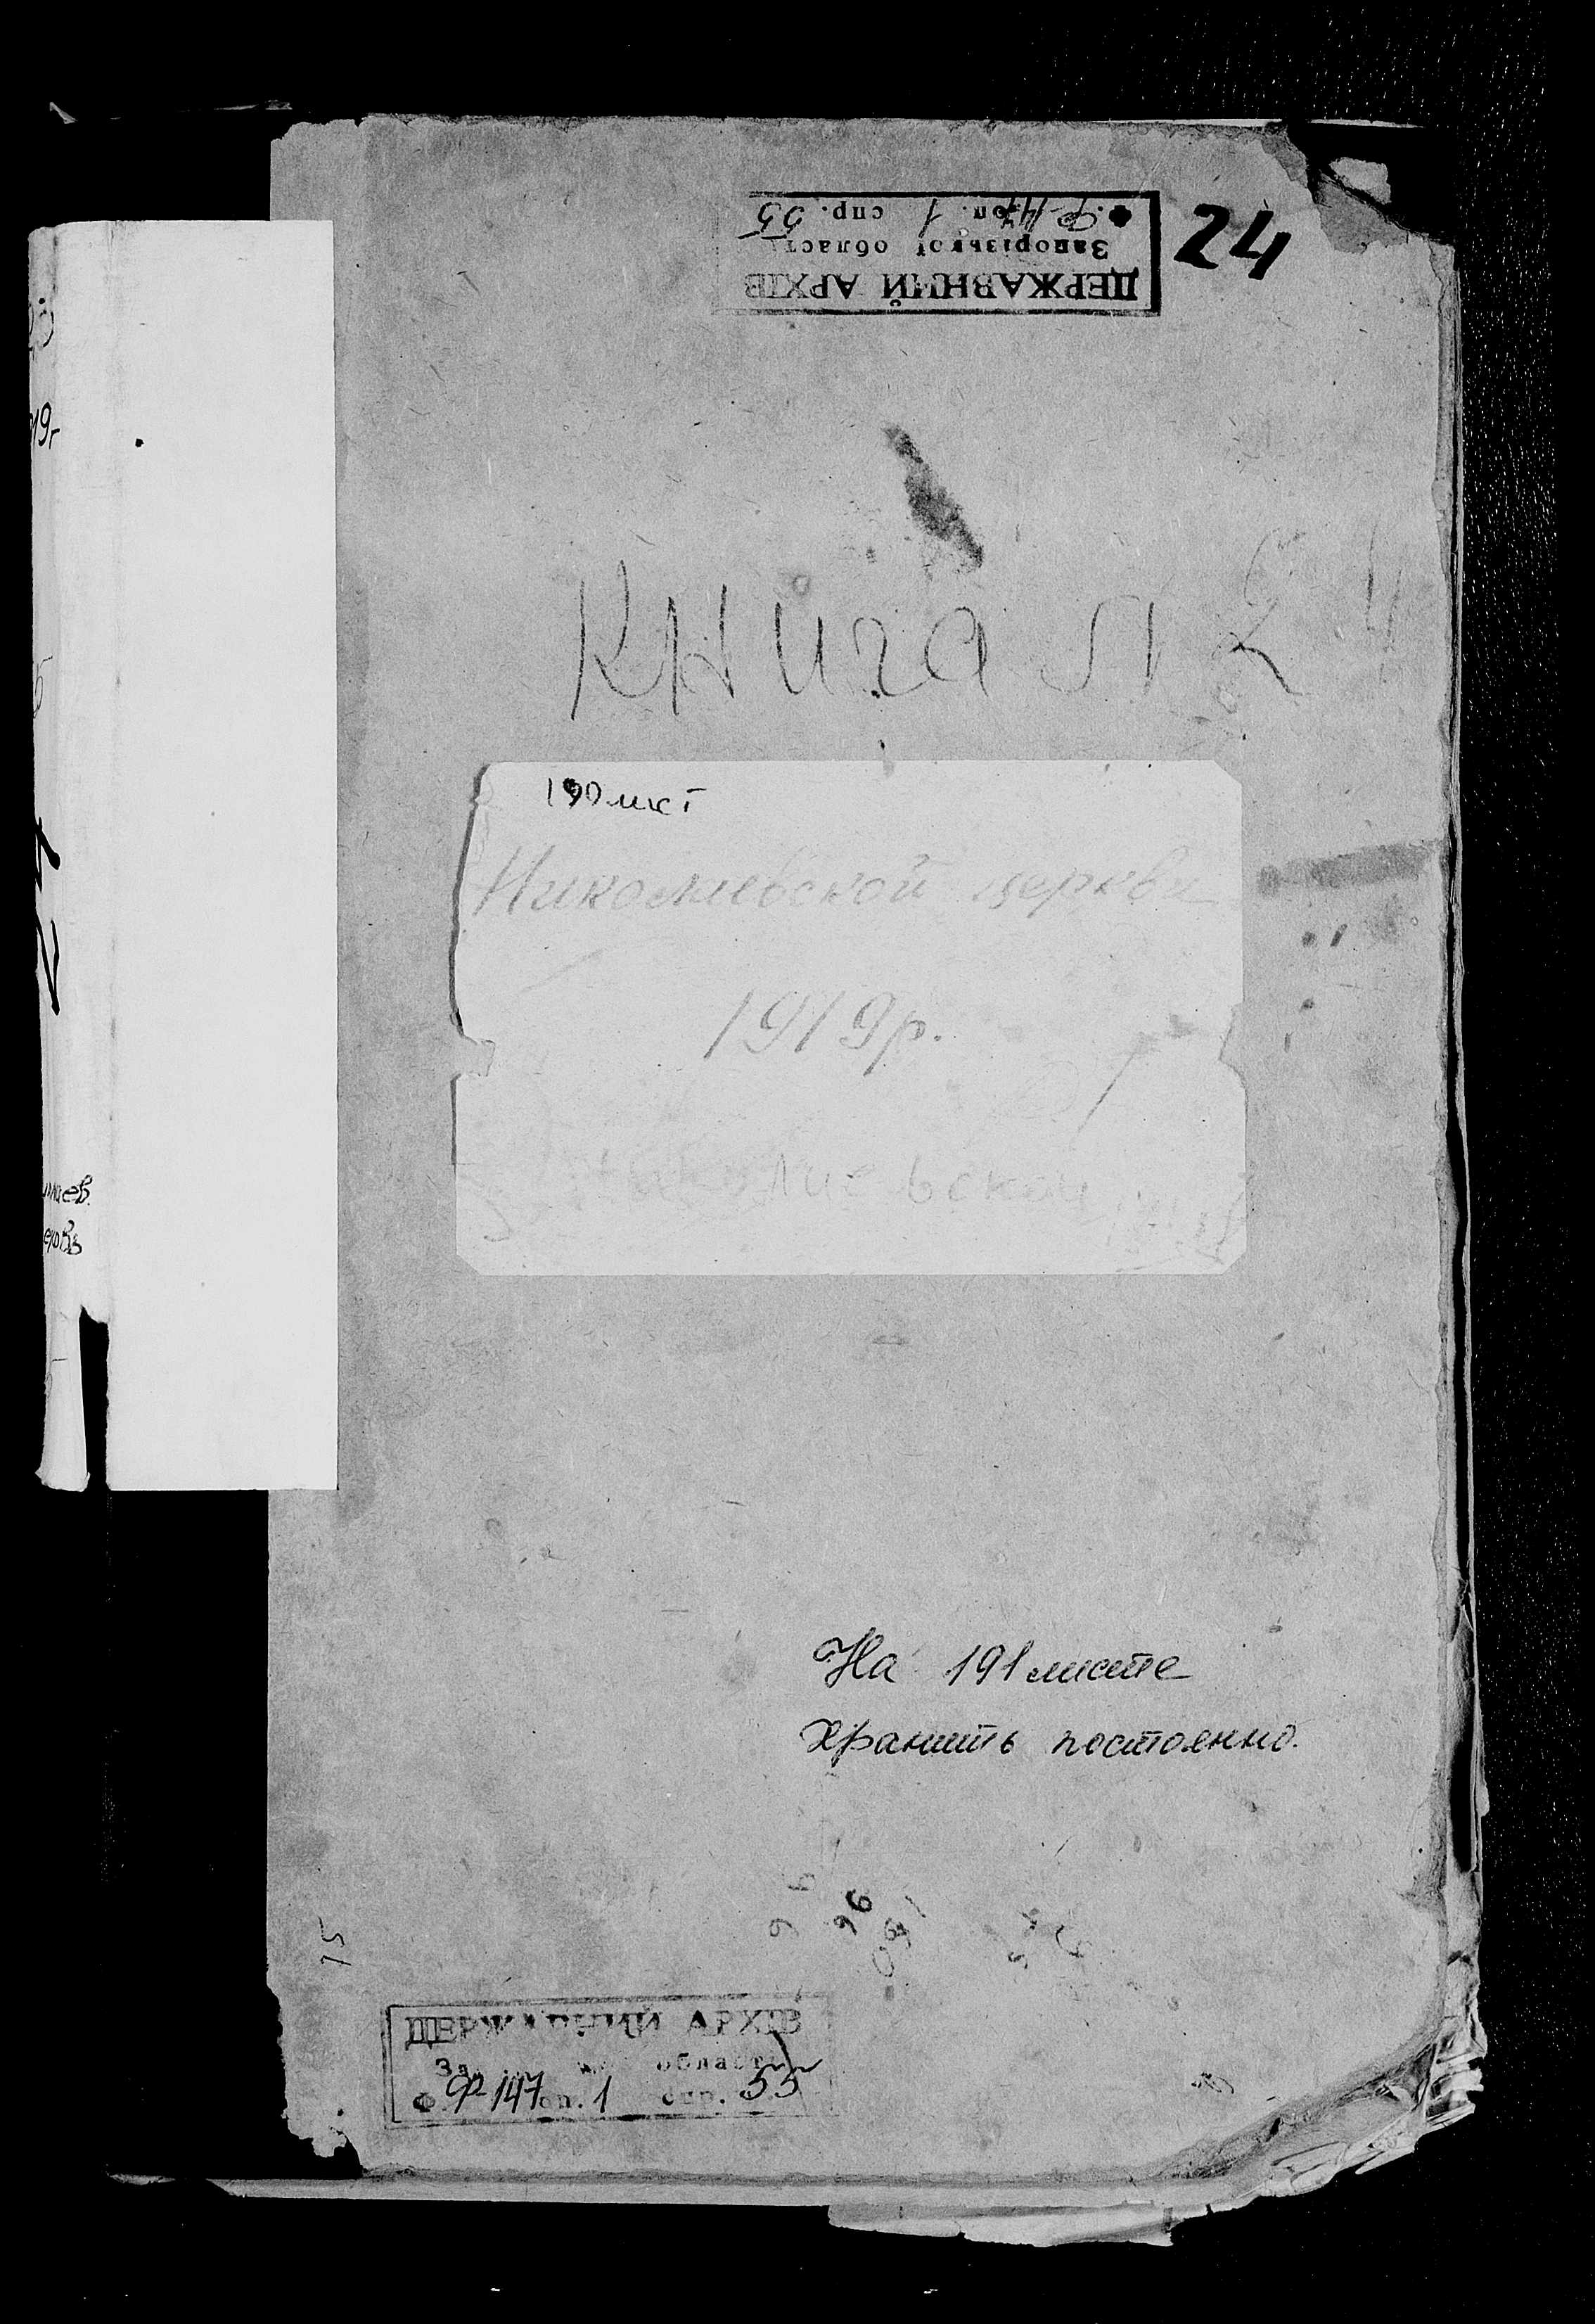 24
ДЕРЖАВНИЙ АРХІВ
Запорізької област
ф. Р-147 оп. 1 спр. 55
КНИГА
190 лист
Николаевской церкви
1919р.
Николаевской
На 191 листе
Хранить постоянно.
96
15
ДЕРЖАВНИЙ АРХІВ
області
Ф. Р-147 оп. 1 спр. 55
19г
24